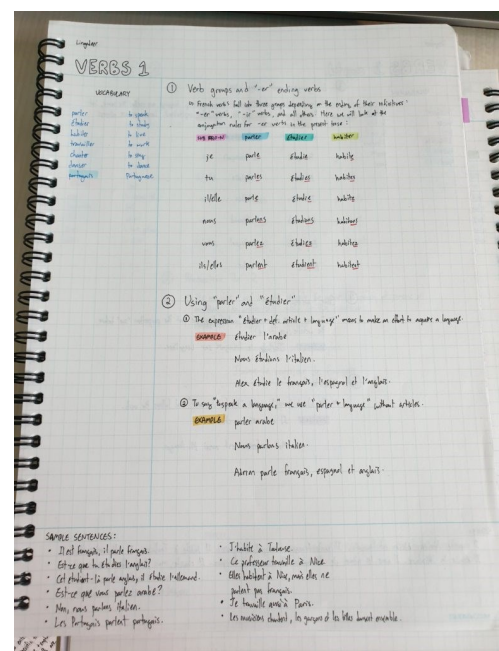 Lingulaer
VERBS 1
VOCABULARY
parler to speak
étudier to study
habiter to live
travailler to work
chanter to sing
danser to dance
portugais Portuguese
① Verb groups and "-er" ending verbs
French verbs fall into three groups depending on the ending of their infinitives:
"-er" verbs, "-ir" verbs, and all others. Here we will look at the
conjugation rules for -er verbs in the present tense:
parler étudier habiter
je parle étudie habite
tu parles étudies habites
il/elle parle étudie habite
nous parlons étudions habitons
vous parlez étudiez habitez
ils/elles parlent étudient habitent
② Using "parler" and "étudier"
① The expression "étudier + def. article + language" means to make an effort to acquire a language.
EXAMPLE étudier l'arabe
Nous étudions l'italien.
Alex étudie le français, l'espagnol et l'anglais.
② To say "to speak a language," we use "parler + language" without articles.
EXAMPLE parler arabe
Nous parlons italien.
parle français, espagnol et anglais.
SAMPLE SENTENCES:
• Il est français, il parle français.
• Est-ce que tu étudies l'anglais?
• Cet étudiant-là parle anglais, il étudie l'allemand.
• Est-ce que vous parlez arabe?
• Non, nous parlons italien.
• Les Portugais parlent portugais.
• J'habite à Toulouse.
• Ce professeur travaille à Nice.
• Elles habitent à Nice, mais elles ne
parlent pas français.
• Je travaille aussi à Paris.
• Les musiciens chantent, les garçons et les filles dansent ensemble.